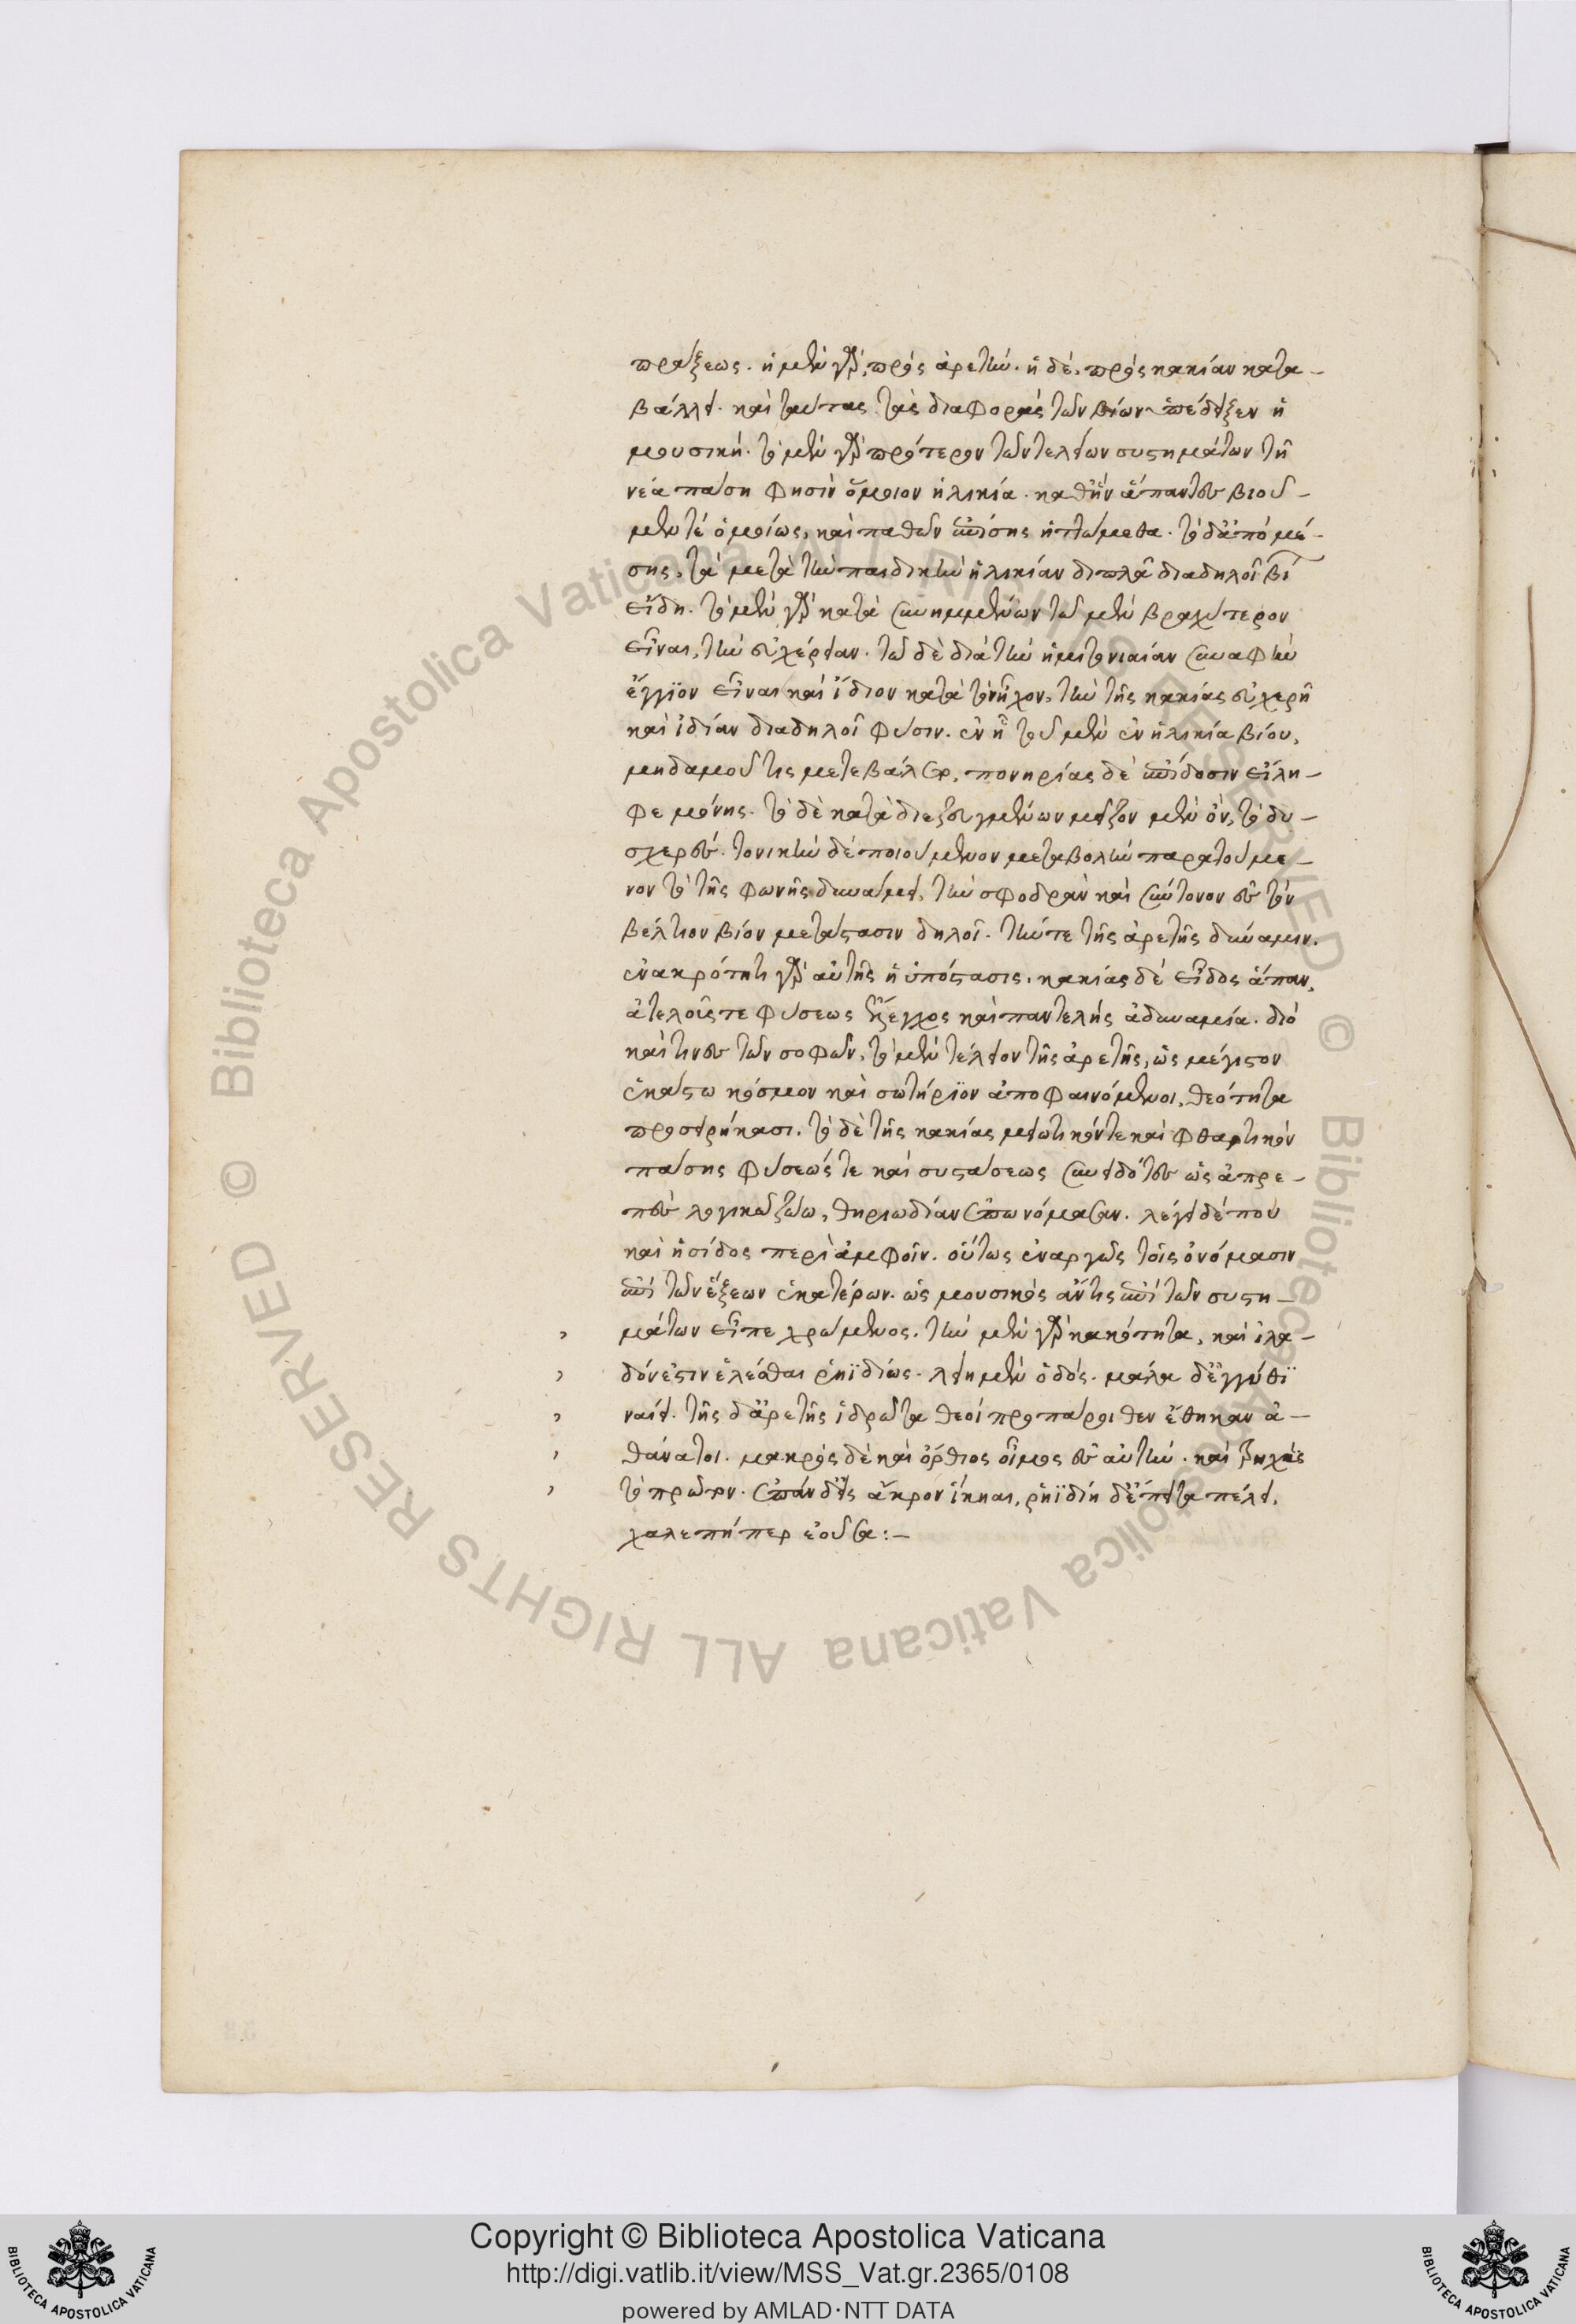 πράξεως. ἡ μὲν γὰρ, πρὸς ἀρετὴν. ἡ δὲ, πρὸς κακίαν κατα-
βάλλει. καὶ ταύτας τὰς διαφορὰς τῶν βίων ἀπέδειξεν ἡ
μουσική. τὸ μὲν γὰρ πρότερον τῶν τελείων συστημάτων τῇ
νέα πάση φησὶν ὅμοιον ἡλικία. καθ' ἣν ἅπαντες βιοῦ-
μέν τε ὁμοίως, καὶ παθῶν ἐπίσης ἡττώμεθα. τὸ δ' ἀπὸ μέ-
σης, τὰ μετὰ τὴν παιδικὴν ἡλικίαν διπλᾶ διαδηλοῖ βί
εἴδη. τὸ μὲν γὰρ κατὰ συνημμένων τῶ μὲν βραχύτερον
εἶναι, τὴν εὐχέρειαν. τῶ δὲ διὰ τὴν ἡμιτονιαίαν συναφὴν
ἔγγϊον εἶναι καὶ ἴδιον κατὰ τὸν ἦχον, τὴν τῆς κακίας εὐχερῆ
καὶ ἰδίαν διαδηλοῖ φύσιν. ἐν ἧ τοῦ μὲν ἐν ἡλικία βίου,
μηδαμοῦ τις μετέβαλεν, πονηρίας δὲ ἐπίδοσιν εἴλη-
φε μόνης. τὸ δὲ κατὰ διεζευγμένων μεῖζον μὲν ὂν, τὸ δυ-
σχερές. τονικὴν δὲ ποιούμενον μεταβολὴν παρατούμε-
νον τὸ τῆς φωνῆς δυνάμει, τὴν σφοδρὰν καὶ σύντονον ἐς τὸν
βέλτιον βίον μετάστασιν δηλοῖ. τήν τε τῆς ἀρετῆς δύναμιν.
ἐν ἀκρότητι γὰρ αὐτῆς ἡ ὑπόστασις. κακίας δὲ εἶδος ἅπαν,
ἀτελοῖς τε φύσεως ἔλεγχος καὶ παντελὴς ἀδυναμία. διὸ
καί τινες τῶν σοφῶν, τὸ μὲν τέλειον τῆς ἀρετῆς, ὡς μέγιστον
ἑκάστω κόσμον καὶ σωτήριϊον ἀποφαινόμενοι, θεότητα
προσειρήκασι. τὸ δὲ τῆς κακίας μειωτικόν τε καὶ φθαρτικὸν
πάσης φύσεώς τε καὶ συστάσεως συνειδότες ὡς ἀπρε-
πὲς λογικῶ ζώω, θηριωδίαν ἐπωνόμασαν. λέγει δέ που
καὶ ἡσίοδος περὶ ἀμφοῖν. οὕτως ἐναργῶς τοῖς ὀνόμασιν
ἐπὶ τῶν ἕξεων ἑκατέρων. ὡς μουσικὸς ἄν τις ἐπὶ τῶν συστη-
μάτων εἶπε χρώμενος. τὴν μὲν γὰρ κακότητα, καὶ ἰλα-
δόν ἐστιν ἑλέσθαι ῥηϊδίως. λείη μὲν ὁδός. μάλα δ' ἐγγύθϊ
ναίει. τῆς δ' ἀρετῆς ἱδρῶτα θεοὶ προπάροιθεν ἔθηκαν ἀ-
θάνατοι. μακρὸς δὲ καὶ ὄρθιος οἶμος ἐς αὐτήν. καὶ τρηχὺς
τὸ πρῶτον. ἐπὰν δ' εἰς ἄκρον ἵκηαι, ῥηϊδίη δ' ἔπειτα πέλει,
χαλεπή περ ἐοῦσα:-
Copyright © Biblioteca Apostolica Vaticana
http://digi.vatlib.it/view/MSS_Vat.gr.2365/0108
powered by AMLAD·NTT DATA
BIBLIOTECA APOSTOLICA VATICANA
BIBLIOTECA APOSTOLICA VATICANA
© Biblioteca Apostolica Vaticana ALL RIGHTS RESERVED © Biblioteca Apostolica Vaticana ALL RIGHTS RESERVED